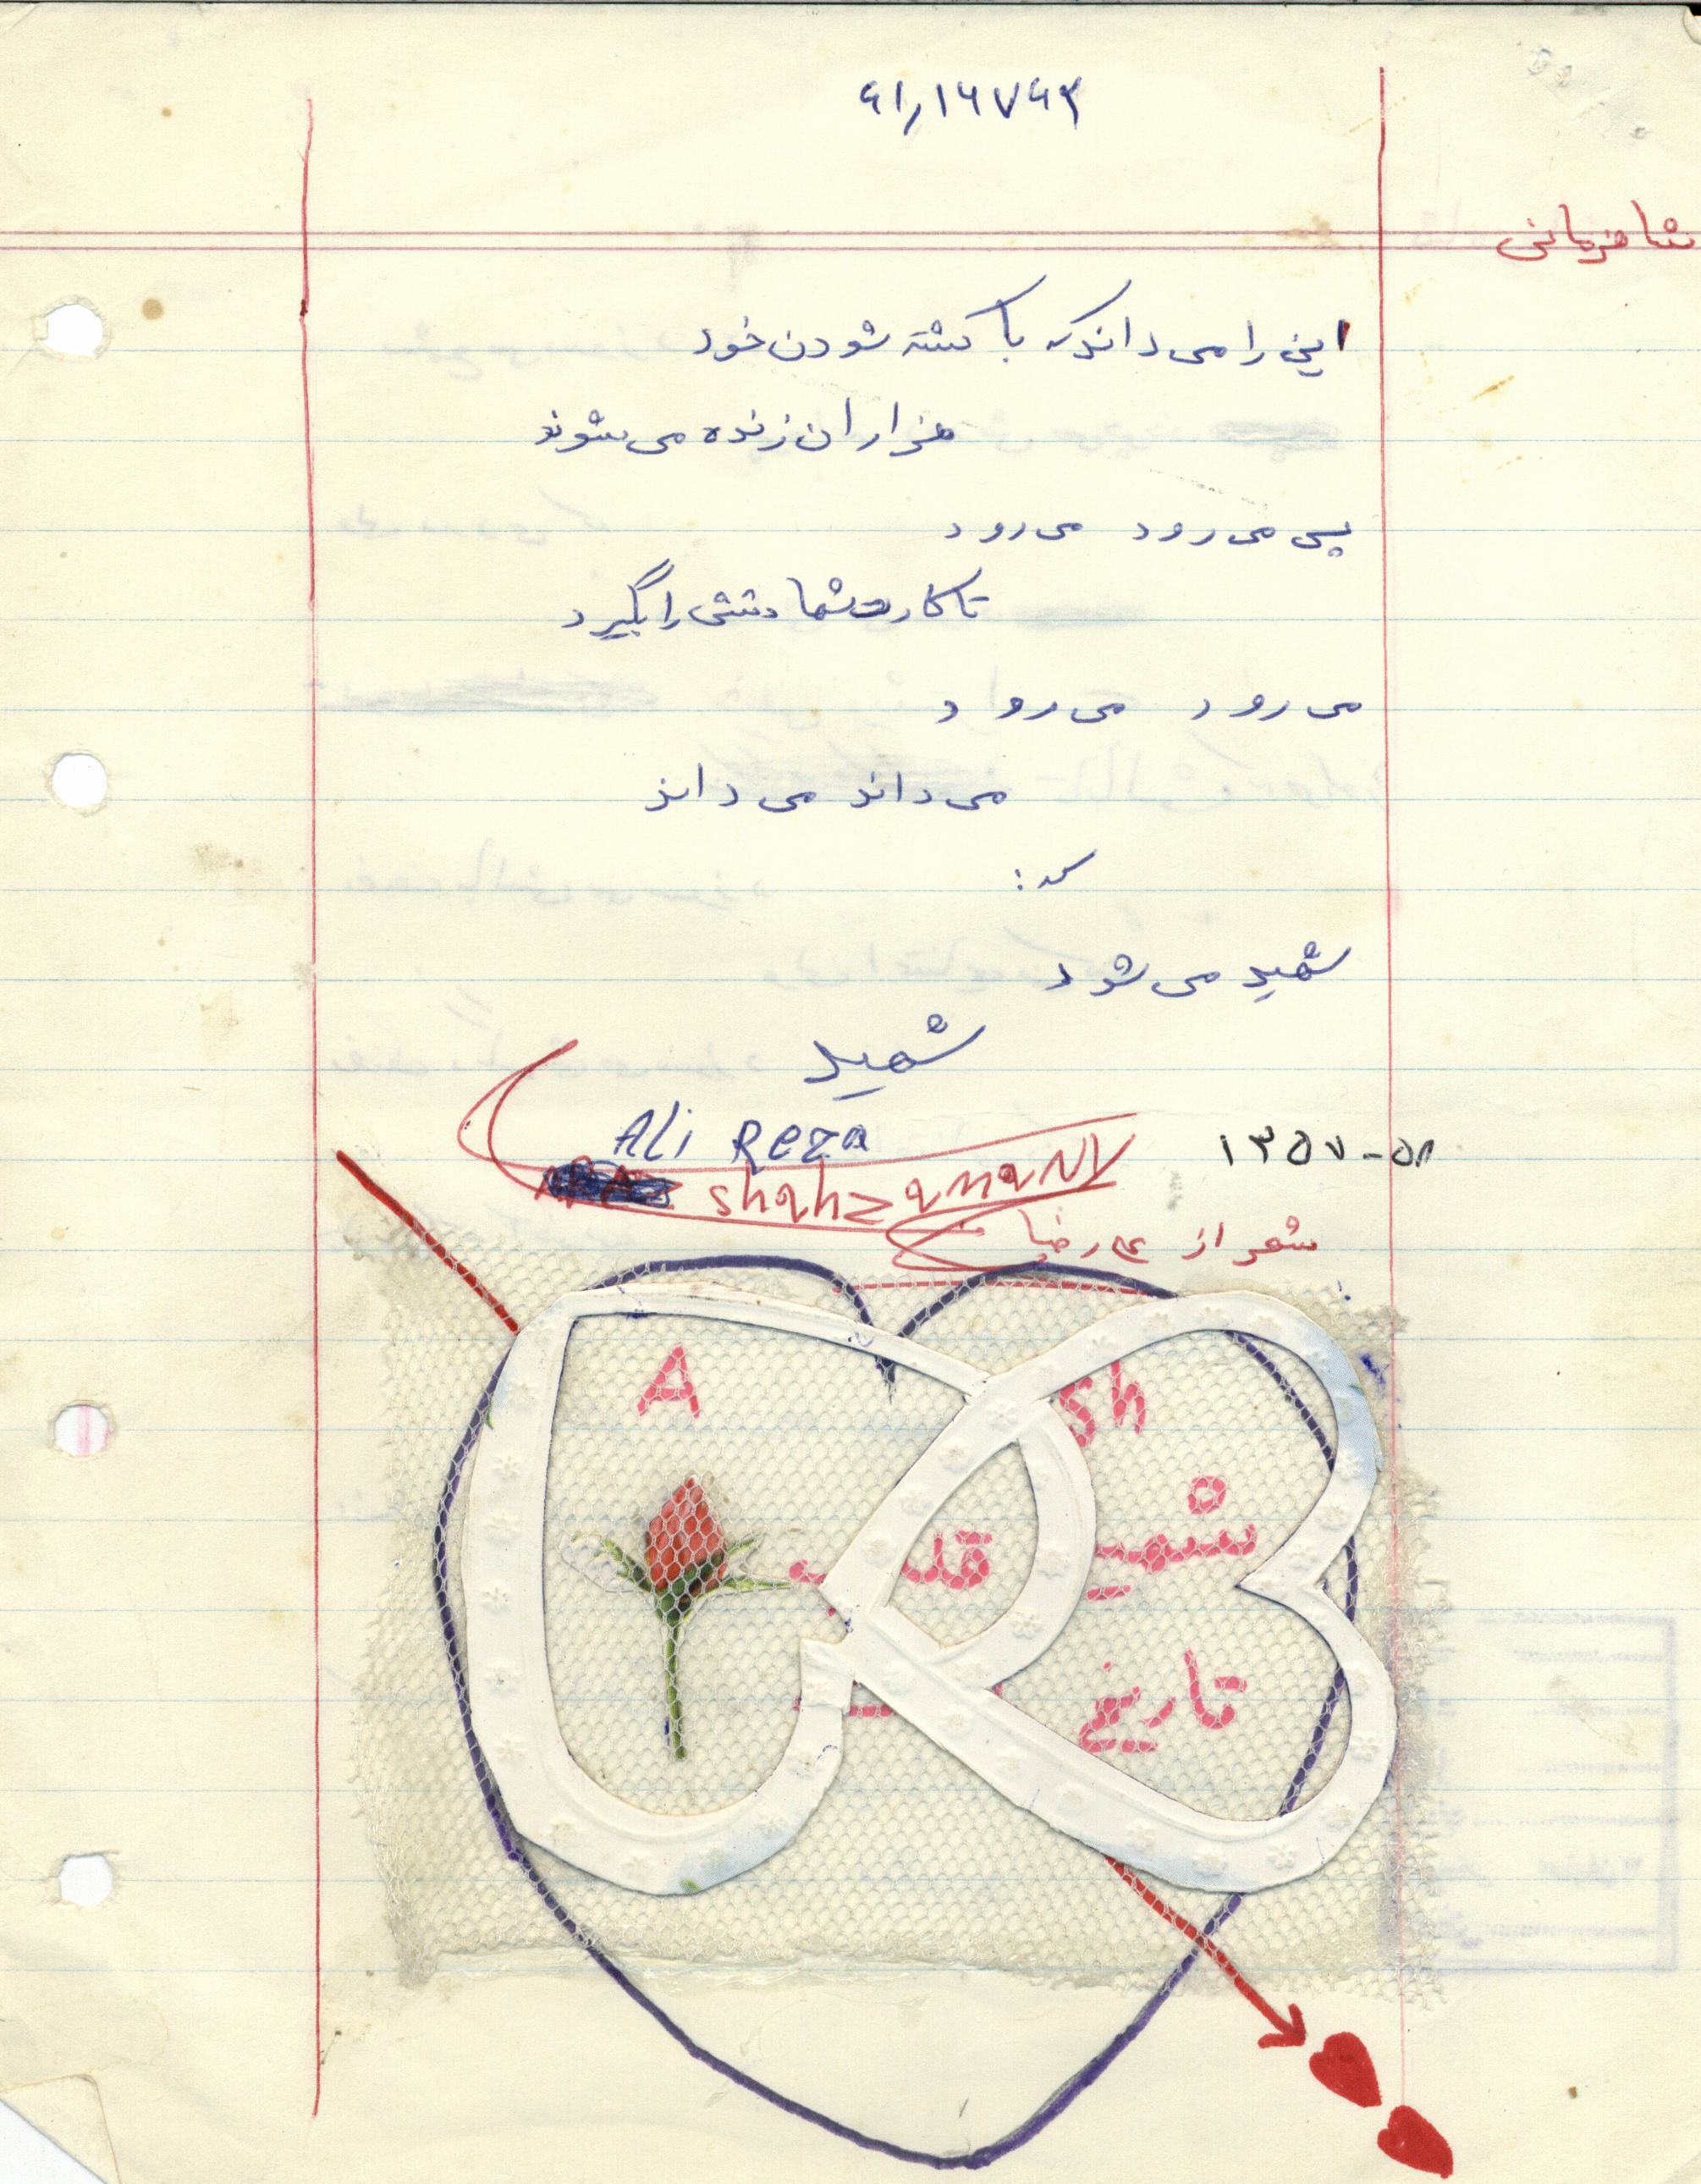 ۶۱٫۱۶۷۶۳
این را می داند که با کشته شودن خود
هزاران زنده می شوند
پس می رود می رود
تا کارد شما دستش را بگیرد
می رود می رود
می داند می داند
که :
شهید می شود
شهید
Ali Reza
۱۳۵۷-۵۸
shahzamaNY
شعر از علی رضا
A sh
شهید قلب
تاریخ